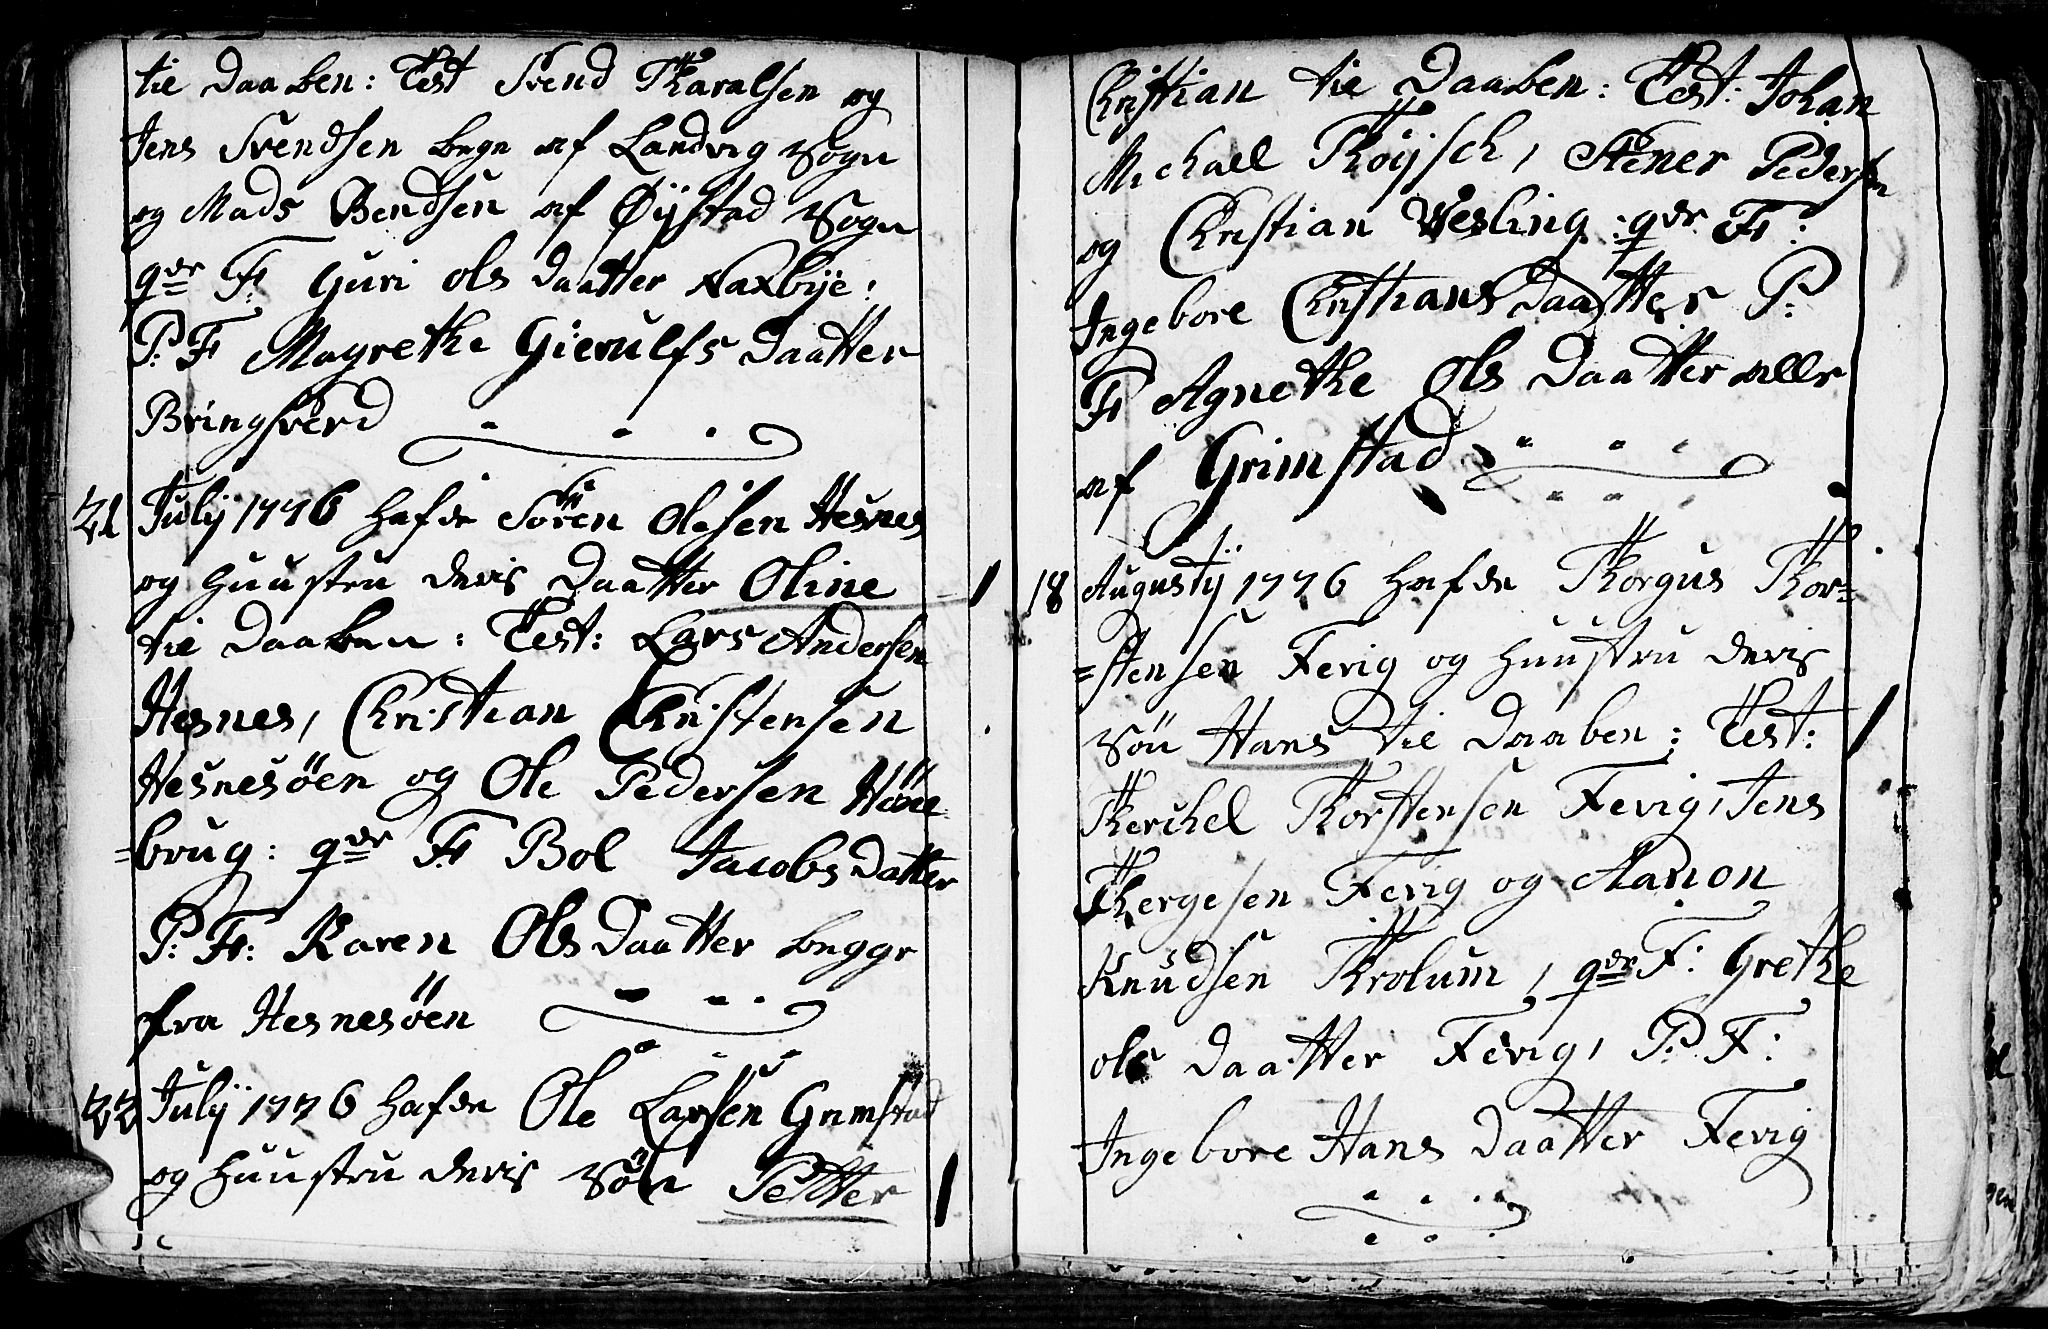 til Daaben: Test Svend Tharalsen og
Jens Svendsen begr af Landvig Sogn
og Mads Bendsen af Øÿstad Sogn
qder F: Guri Ols Daatter Naxbije:
P: F Magrethe Gierulfs Daatter
Bringsverd
21 Julij 1776 hafde Sören Olesen Hesnes
og Huustru deris Daatter Oline
til Daaben: Test: Lars Andersen
Hesnes, Christian Christensen
Hesnesöen og Ole Pedersen Höne=
=brug: qder F: Bol Jacobs Datter
P: F: Karen Ols Daatter begge
fra Hesnesöen
22 Julij 1776 hafde Ole Larsen Grimstad
og Huustru deris Sön Petter
Christian til Daaben: Test: Johan
Michael Thöÿsch, Stener Pedersen
og Christian Wesling: qder F:
Ingebore Christians Daatter P:
F: Agnethe Ols Daatter alle
af Grimstad
18 Augustij 1776 hafde Thorgus Thor=
=stensen Fevig og Huustru deris
Sön Hans til Daaben: Test:
Therchel Thorstensen Fevig, Jens
Thergesen Fevig og Aanon
Knudsen Throlum, qder F: Grethe
Ole Daatter Fevig, P: F:
Ingebore Hans Daatter Fevig